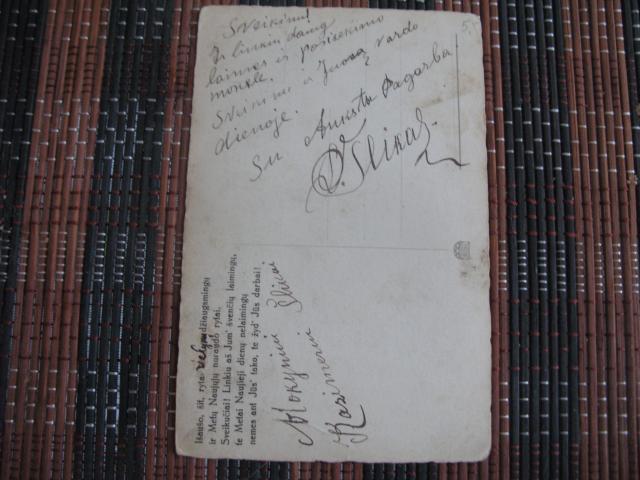 Sveikinu!
Ir linkiu daug
laimės ir pasisekimo
moksle.
Sveikinu ir Juos vardo
dienoje.
Su Aukšta Pagarba!
Šlikas
5.
Išaušo, šit, ryta Velyku džiaugsmingų
ir Metų Naujųjų nuraudo rytai.
Sveikučiai! Linkiu aš Jum' švenčių laimingų,
te Metai Naujieji dienų nelaimingų
nemes ant Jūs' tako, te žyd' Jūs darbai!
Mokyniui Šlikai
Kazimerui